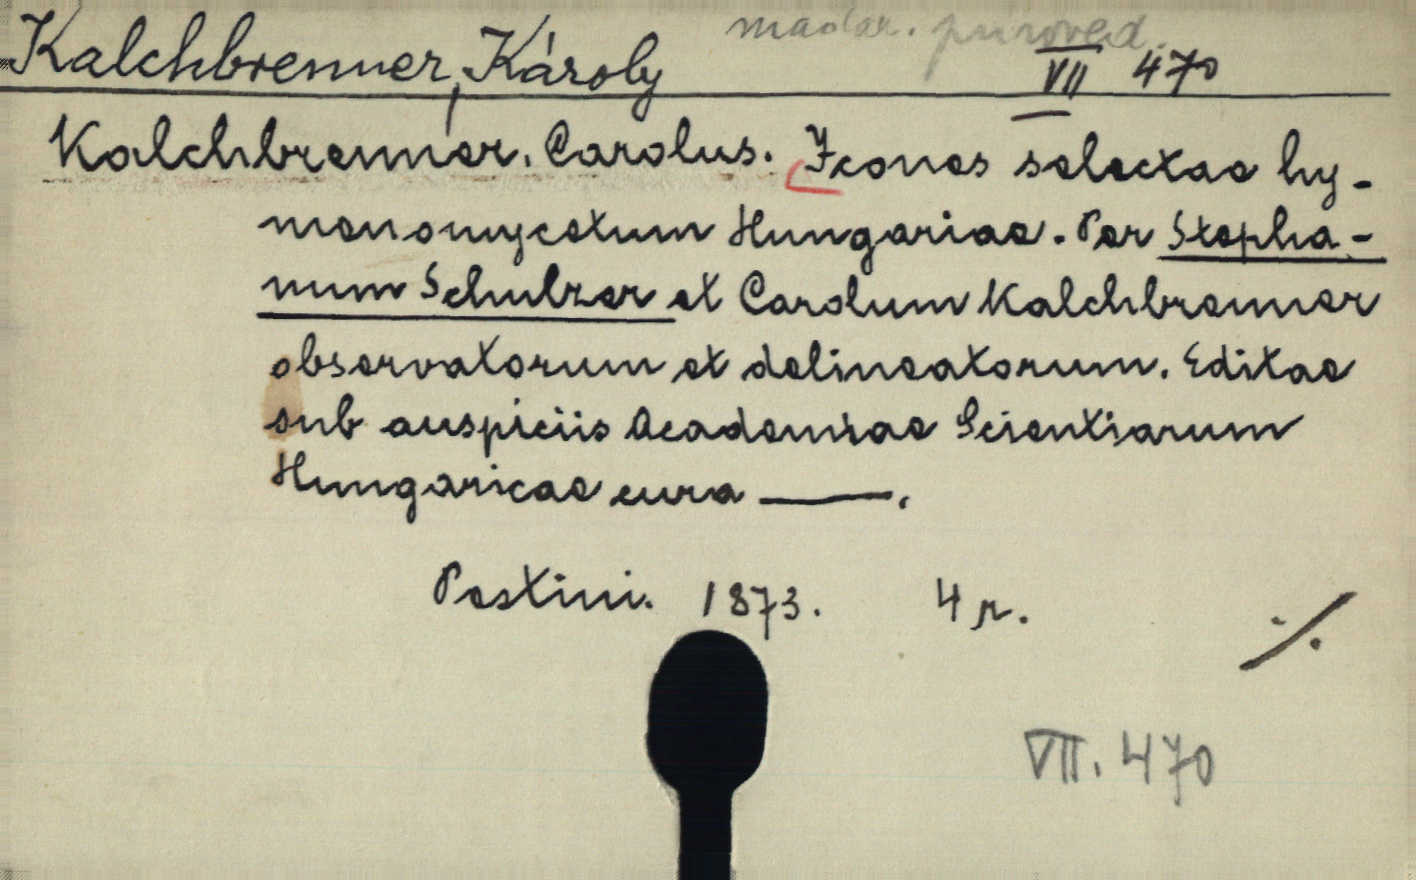 madar. priroved.
Kalchbrenner, Károly VII 470
Kalchbrenner. Carolus. Icones selectae hy-
menomycetum Hungariae. Per Stepha-
num Schulzer et Carolum Kalchbrenner
observatorum et delineatorum. Editae
sub auspiciis Academiae Scientiarum
Hungaricae cura ——.
Pestini. 1873. 4 r.
./.
VII. 470